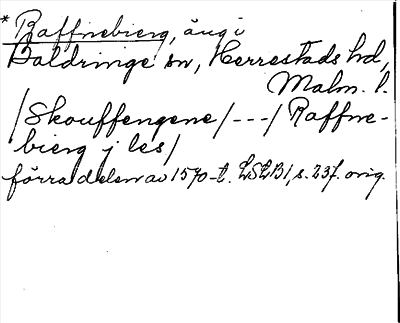 * Raffnebierg, äng i
Baldringe sn, Herrestads hd,
Malm. l.
/Skouffengene/---/Raffne-
bierg j les/
förra delen av 1570-t. LSLB1, s. 237. orig.